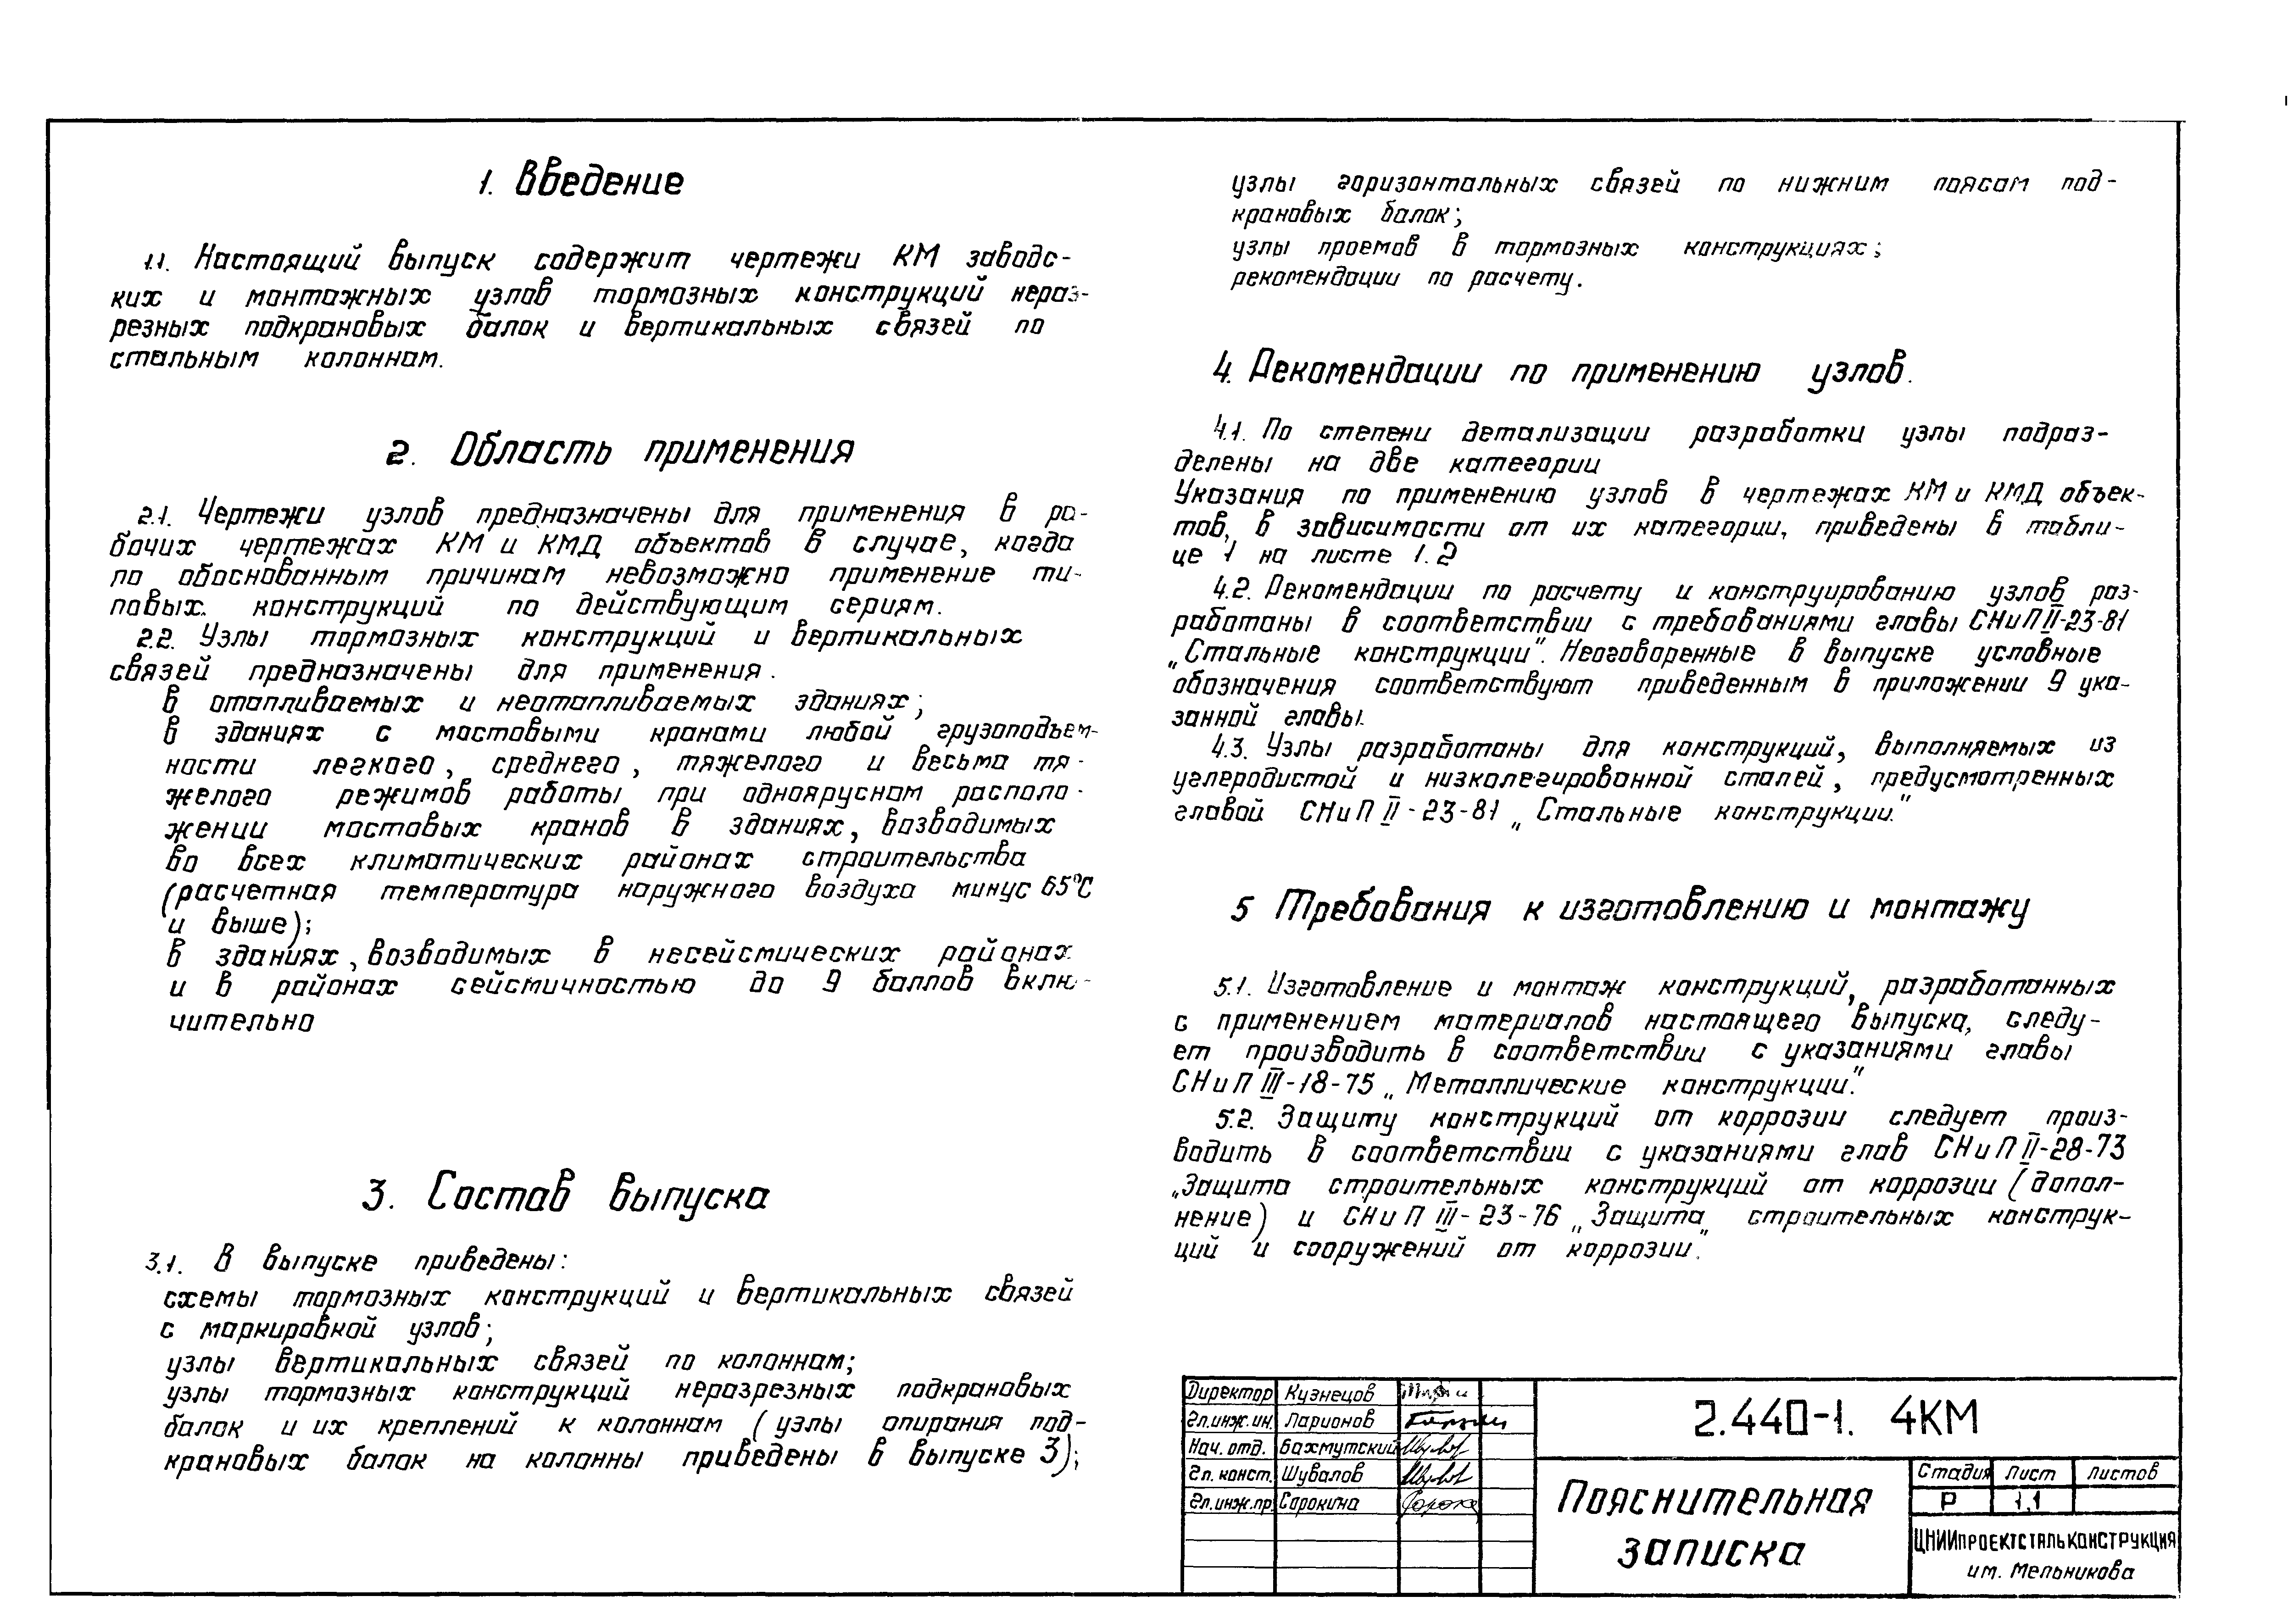 1. Введение
1.1. Настоящий выпуск содержит чертежи КМ заводс-
ких и монтажных узлов тормозных конструкций нераз-
резных подкрановых балок и вертикальных связей по
стальным колоннам.
2. Область применения
2.1. Чертежи узлов предназначены для применения в ра-
бочих чертежах КМ и КМД объектов в случае, когда
по обоснованным причинам невозможно применение ти-
повых. конструкций по действующим сериям.
2.2. Узлы тормозных конструкций и вертикальных
связей предназначены для применения.
в отапливаемых и неотапливаемых зданиях;
в зданиях с мостовыми кранами любой грузоподъем-
ности легкого, среднего, тяжелого и весьма тя-
желого режимов работы при одноярусном располо-
жении мостовых кранов в зданиях, возводимых
во всех климатических районах строительства
(расчетная температура наружного воздуха минус 65°С
и выше);
в зданиях, возводимых в несейсмических районах
и в районах сейсмичностью до 9 баллов вклю-
чительно
3. Состав выпуска
3.1. В выпуске приведены:
схемы тормозных конструкций и вертикальных связей
с маркировкой узлов;
узлы вертикальных связей по колоннам;
узлы тормозных конструкций неразрезных подкрановых
балок и их креплений к колоннам (узлы опирания под-
крановых балок на колонны приведены в выпуске 3);
узлы горизонтальных связей по нижним поясам под-
крановых балок;
узлы проемов в тормозных конструкциях;
рекомендации по расчету.
4. Рекомендации по применению узлов.
4.1. По степени детализации разработки узлы подраз-
делены на две категории
Указания по применению узлов в чертежах КМ и КМД объек-
тов, в зависимости от их категории, приведены в табли-
це 1 на листе 1.2
4.2. Рекомендации по расчету и конструированию узлов раз-
работаны в соответствии с требованиями главы СНиП II-23-81
„Стальные конструкции". Неоговоренные в выпуске условные
обозначения соответствуют приведенным в приложении 9 ука-
занной главы.
4.3. Узлы разработаны для конструкций, выполняемых из
углеродистой и низколегированной сталей, предусмотренных
главой СНиП II-23-81 „Стальные конструкции."
5 Требования к изготовлению и монтажу
5.1. Изготовление и монтаж конструкций, разработанных
с применением материалов настоящего выпуска, следу-
ет производить в соответствии с указаниями главы
СНиП III-18-75 „Металлические конструкции."
5.2. Защиту конструкций от коррозии следует произ-
водить в соответствии с указаниями глав СНиП II-28-73
„Защита строительных конструкций от коррозии (допол-
нение) и СНиП III-23-76 „Защита строительных конструк-
ций и сооружений от коррозии".
Директор Кузнецов
Гл.инж.ин. Ларионов
Нач. отд. Бахмутский
Гл. конст. Шувалов
Гл.инж.пр. Сорокина
2.440-1. 4КМ
Пояснительная
записка
Стадия Лист Листов
Р 1.1
ЦНИИПРОЕКТСТАЛЬКОНСТРУКЦИЯ
им. Мельникова